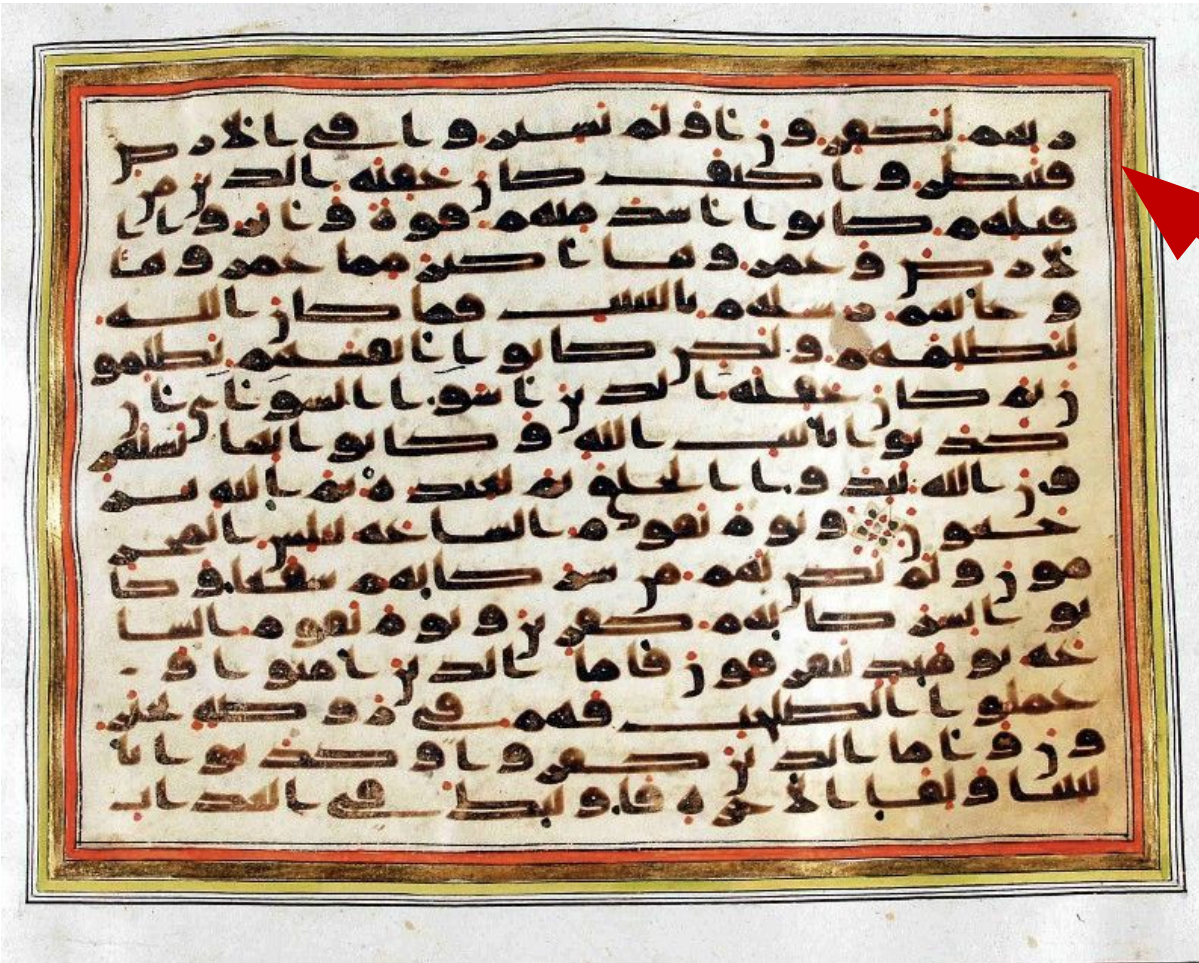 ربهم لكفرون اولم يسيروا في الارض
فينظروا كيف كان عقبة الذين من
قبلهم كانوا اشد منهم قوة واثاروا ا
لارض وعمروها اكثر مما عمروها
وجاتهم رسلهم بالبينت فما كان الله
ليظلمهم ولكن كانوا انفسهم يظلمو
ن ثم كان عقبة الذين اسوا السواى ان
كذبوا بايت الله وكانوا بها يستهز
ون الله يبدوا الخلق ثم يعيده ثم اليه تر
جعون ويوم تقوم الساعة يبلس المجر
مون ولم يكن لهم من شركايهم شفعا وكا
نوا بشركايهم كفرين ويوم تقوم السا
عة يوميذ يتفرقون فاما الذين امنوا و
عملوا الصلحت فهم في روضة يحبر
ون واما الذين كفروا وكذبوا با
يتنا ولقاى الاخرة فاوليك في العذاب